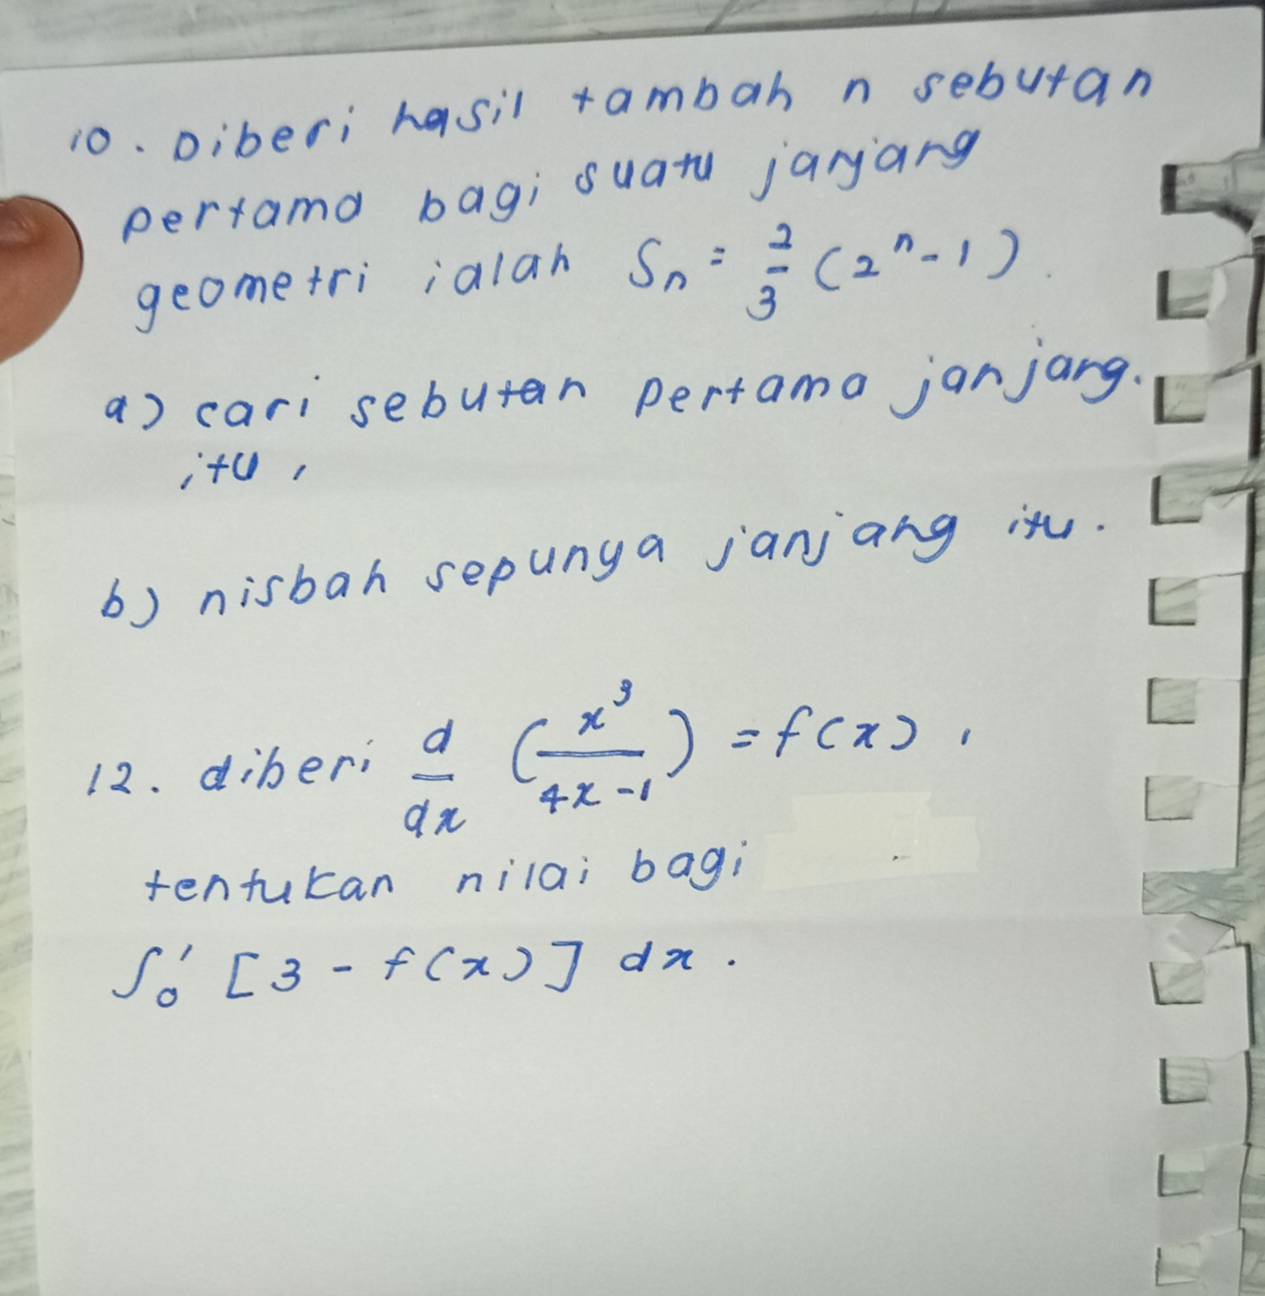 10. Diberi hasil tambah n sebutan
pertama bagi suatu janjang
geometri ialah Sₙ = 2/3 (2ⁿ - 1).
a) cari sebutan pertama janjang.
itu,
b) nisbah sepunya janjang itu.
12. diberi d/dx (x³/(4x - 1)) = f(x),
tentukan nilai bagi
∫₀¹ [3 - f(x)] dx.